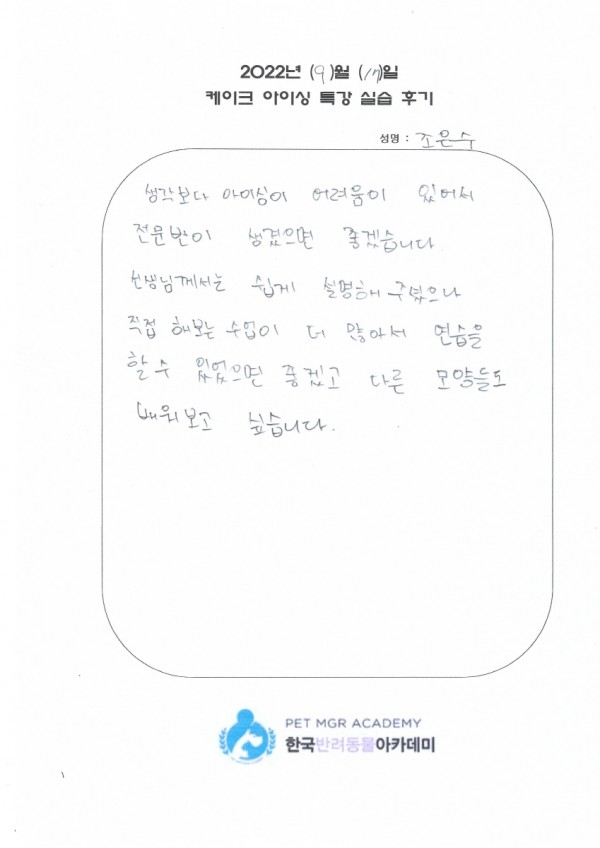 2022년 (9)월 (17)일
케이크 아이싱 특강 실습 후기
성명 : 조은수
생각보다 아이싱이 어려움이 있어서
전문반이 생겼으면 좋겠습니다.
선생님께서는 쉽게 설명해 주셨으나
직접 해보는 수업이 더 많아서 연습을
할 수 있었으면 좋겠고 다른 모양들도
배워보고 싶습니다.
PET MGR ACADEMY
한국반려동물아카데미